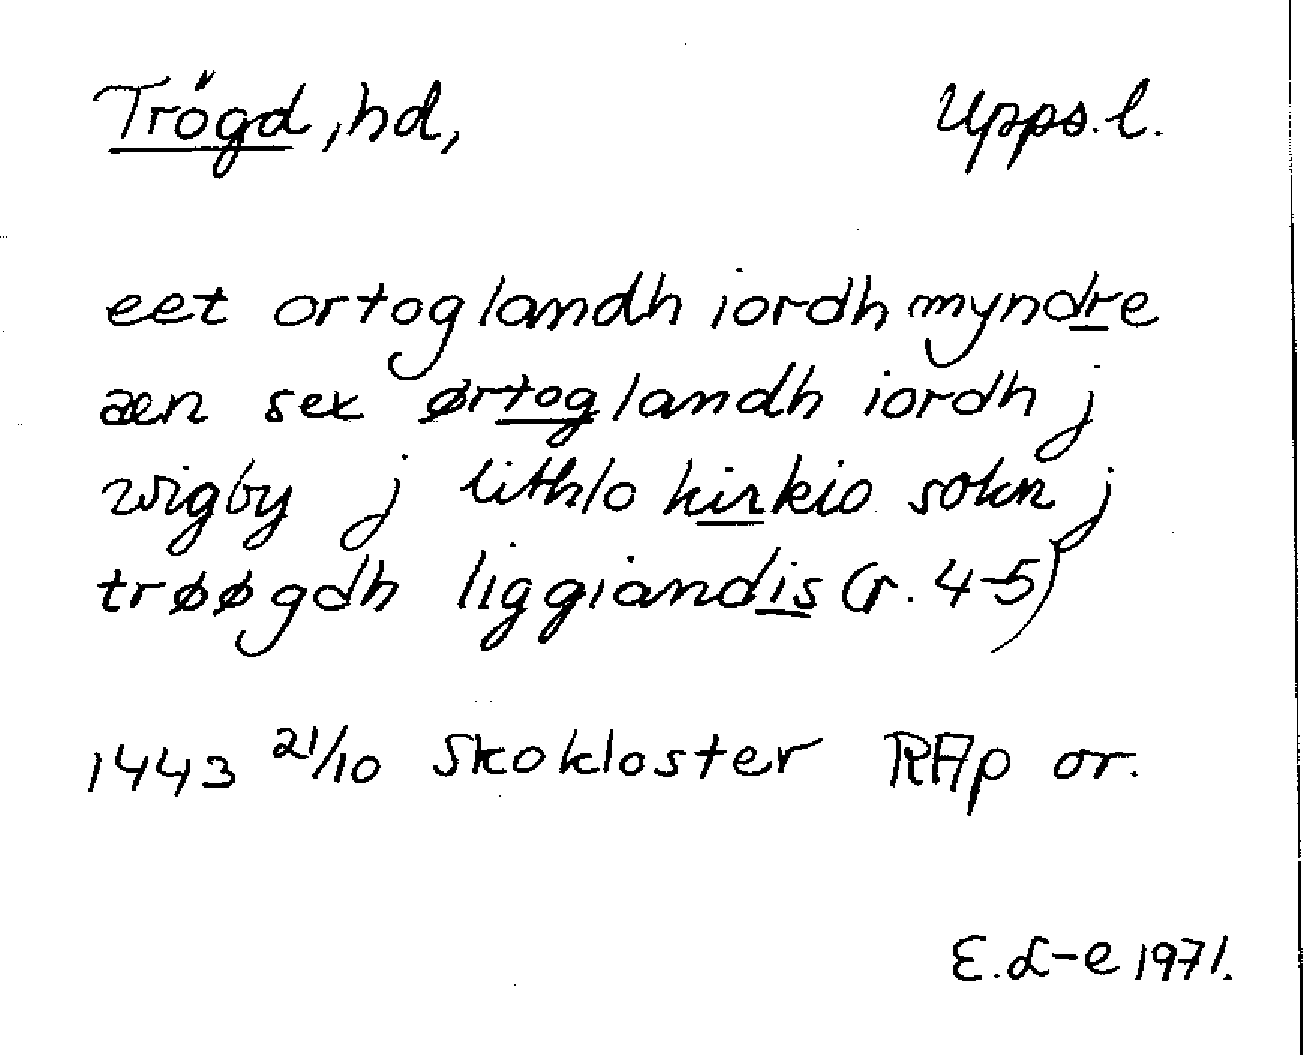 Trögd, hd, Upps. l.
eet ortoglandh iordh myndre
æen sex ørtoglandh iordh j
wigby j lithlo kirkio sokn j
trøøgdh liggiandis (r. 4-5)
1443 21/10 Skokloster RAp or.
E. L-e 1971.